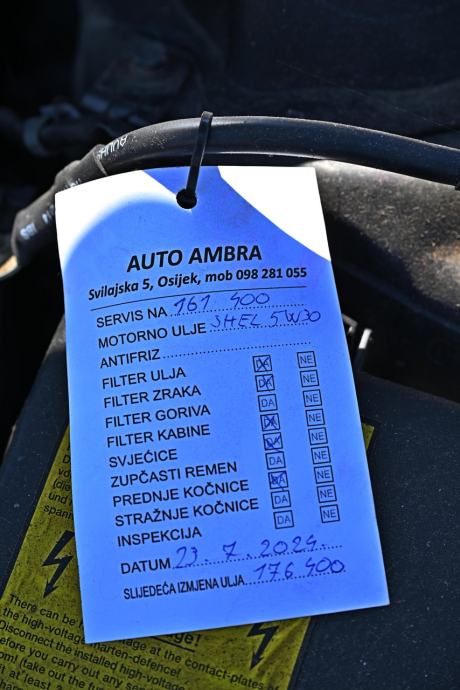 AUTO AMBRA
Svilajska 5, Osijek, mob 098 281 055
SERVIS NA 161 400
MOTORNO ULJE SHEL 5W30
ANTIFRIZ
FILTER ULJA DA NE
FILTER ZRAKA DA NE
FILTER GORIVA DA NE
FILTER KABINE DA NE
SVJEĆICE DA NE
ZUPČASTI REMEN DA NE
PREDNJE KOČNICE DA NE
STRAŽNJE KOČNICE DA NE
INSPEKCIJA DA NE
DATUM 23. 7. 2024.
SLIJEDEĆA IZMJENA ULJA 176 400
und
There can be at the contact-plates of
the high-voltage marten-defence!
Disconnect the installed high-voltage
before you carry out any
(take out the
it at least